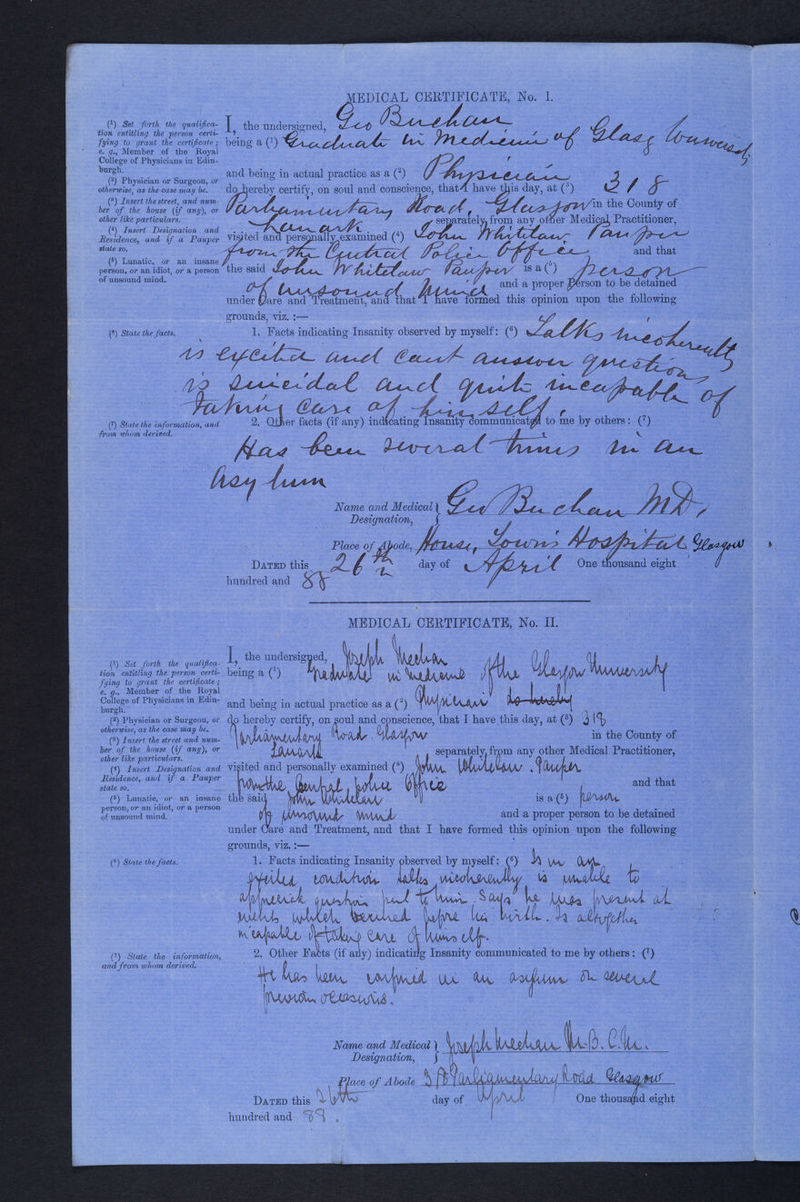 MEDICAL CERTIFICATE, No. I.
(¹) Set forth the qualifica-
tion entitling the person certi-
fying to grant the certificate;
e. g., Member of the Royal
College of Physicians in Edin-
burgh.
(²) Physician or Surgeon, or
otherwise, as the case may be.
(³) Insert the street, and num-
ber of the house (if any), or
other like particulars.
(⁴) Insert Designation and
Residence, and if a Pauper
state so.
(⁵) Lunatic, or an insane
person, or an idiot, or a person
of unsound mind.
I, the undersigned, Geo Buchan
being a (¹) Graduate in Medicine of Glasg University
and being in actual practice as a (²) Physician
do hereby certify, on soul and conscience, that I have this day, at (³) 318
Parliamentary Road, Glasgow in the County of
Lanark separately from any other Medical Practitioner,
visited and personally examined (⁴) John Whitelaw Pauper
from the Central Police Office and that
the said John Whitelaw Pauper is a (⁵) person
of unsound mind and a proper person to be detained
under Care and Treatment, and that I have formed this opinion upon the following
grounds, viz. :—
(⁶) State the facts.
1. Facts indicating Insanity observed by myself: (⁶) Talks incoherently
is excited and cant answer questions
is suicidal and quite incapable of
taking care of himself.
(⁷) State the information, and
from whom derived.
2. Other facts (if any) indicating Insanity communicated to me by others: (⁷)
Has been several times in an
asylum
Name and Medical Designation, Geo Buchan MD,
Place of Abode, House, Towns Hospital Glasgow
DATED this 26th day of April One thousand eight
hundred and 88
MEDICAL CERTIFICATE, No. II.
(¹) Set forth the qualifica-
tion entitling the person certi-
fying to grant the certificate;
e. g., Member of the Royal
College of Physicians in Edin-
burgh.
(²) Physician or Surgeon, or
otherwise, as the case may be.
(³) Insert the street and num-
ber of the house (if any), or
other like particulars.
(⁴) Insert Designation and
Residence, and if a Pauper
state so.
(⁵) Lunatic, or an insane
person, or an idiot, or a person
of unsound mind.
I, the undersigned, Joseph Meehan
being a (¹) Graduate in medicine of the Glasgow University
and being in actual practice as a (²) Physician do hereby
do hereby certify, on soul and conscience, that I have this day, at (³) 318
Parliamentary Road. Glasgow in the County of
Lanark separately, from any other Medical Practitioner,
visited and personally examined (⁴) John Whitelaw. Pauper
from the Central police Office and that
the said John Whitelaw is a (⁵) person
of unsound mind and a proper person to be detained
under Care and Treatment, and that I have formed this opinion upon the following
grounds, viz. :—
(⁶) State the facts.
1. Facts indicating Insanity observed by myself: (⁶) Is in an
excited condition talks incoherently is unable to
appreciate question put to him. Says he was present at
events which occurred before his birth. Is altogether
incapable of taking care of himself.
(⁷) State the information,
and from whom derived.
2. Other Facts (if any) indicating Insanity communicated to me by others: (⁷)
He has been confined in an asylum on several
previous occasions.
Name and Medical Designation, Joseph Meehan M.B. C.M.
Place of Abode Parliamentary Road Glasgow
DATED this 26th day of April One thousand eight
hundred and 88.